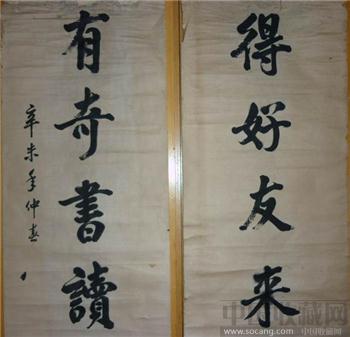 得好友来
有奇書讀
辛未年仲春
中国收藏网
www.socang.com 中国收藏网